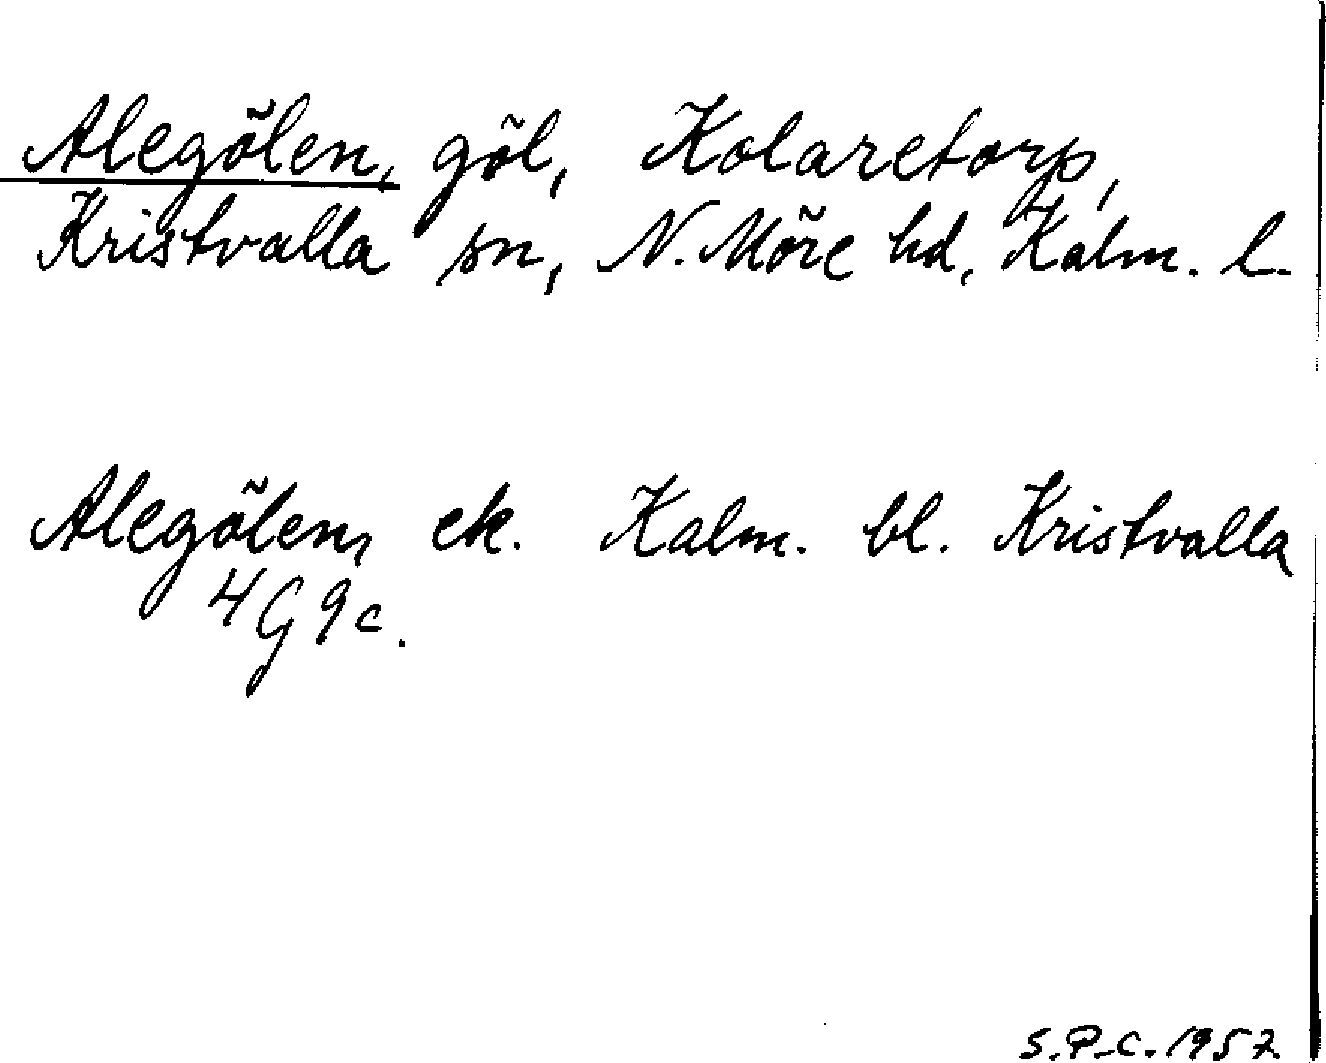 Alegölen, göl, Kolaretorp,
Kristvalla sn, N. Möre hd, Kalm. l.
Alegölen, ek. Kalm. bl. Kristvalla
4G9c.
S.P-C. 1957.